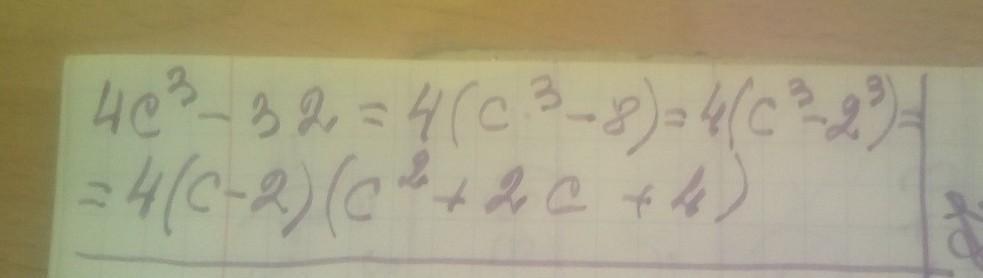 4c³ - 32 = 4(c·³ - 8) = 4(c³ - 2³) =
= 4(c - 2)(c² + 2c + 4)